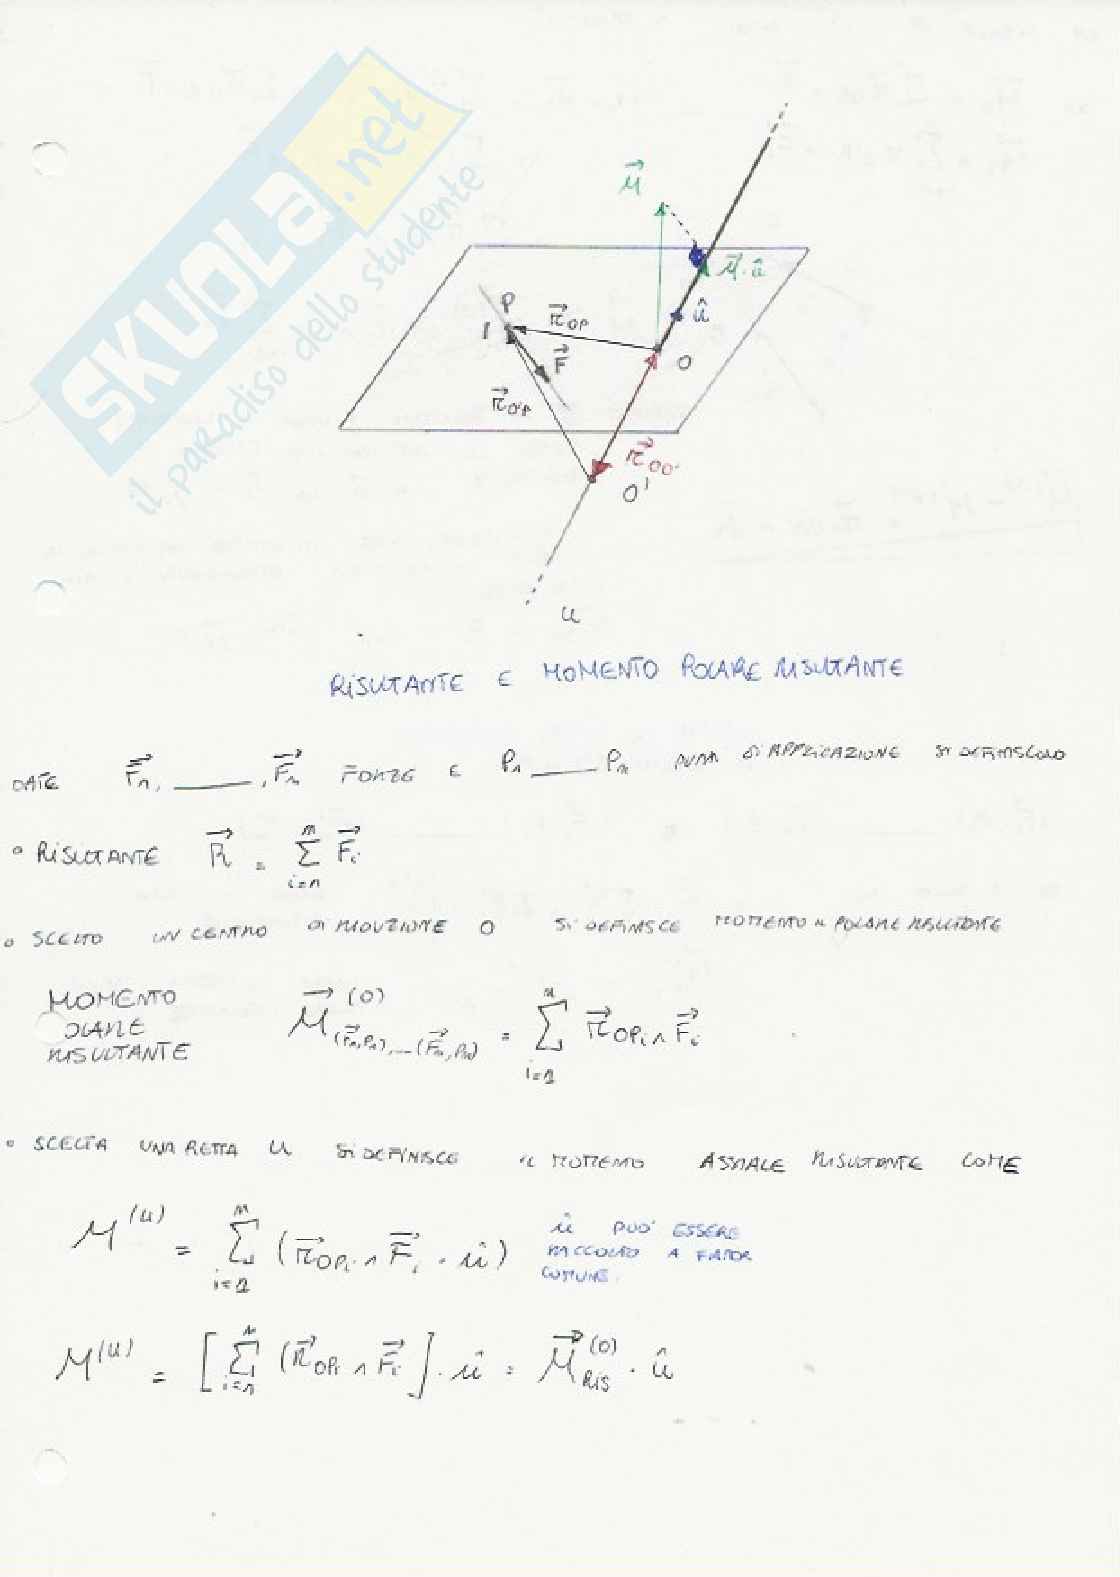 SKUOLA.net
il paradiso dello studente
M⃗
M⃗·û
P
r⃗OP
û
F⃗
O
r⃗O'P
r⃗OO'
O'
u
RISULTANTE E MOMENTO POLARE RISULTANTE
DATE F⃗1, ____, F⃗n FORZE E P1 ____ Pn PUNTI DI APPLICAZIONE SI DEFINISCONO
° RISULTANTE R⃗ = Σ(i=1, n) F⃗i
° SCELTO UN CENTRO DI RIDUZIONE O SI DEFINISCE MOMENTO POLARE RISULTANTE
MOMENTO POLARE RISULTANTE M⃗(O)(F⃗1,P1),...(F⃗n,Pn) = Σ(i=1, n) r⃗OPi ∧ F⃗i
° SCELTA UNA RETTA U SI DEFINISCE IL MOMENTO ASSIALE RISULTANTE COME
M(u) = Σ(i=1, n) (r⃗OPi ∧ F⃗i · û) û PUO' ESSERE RACCOLTO A FATTOR COMUNE.
M(u) = [Σ(i=1, n) (r⃗OPi ∧ F⃗i] · û = M⃗(O)RIS · û